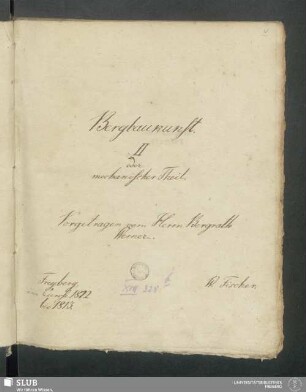 Bergbaukunst.
II
oder
mechanischer Theil.
Vorgetragen vom Herrn Bergrath
Werner.
Freyberg
1812
bis 1813.
W Fischer.
XVII 328
SLUB
Wir führen Wissen.
UNIVERSITÄTSBIBLIOTHEK
FREIBERG